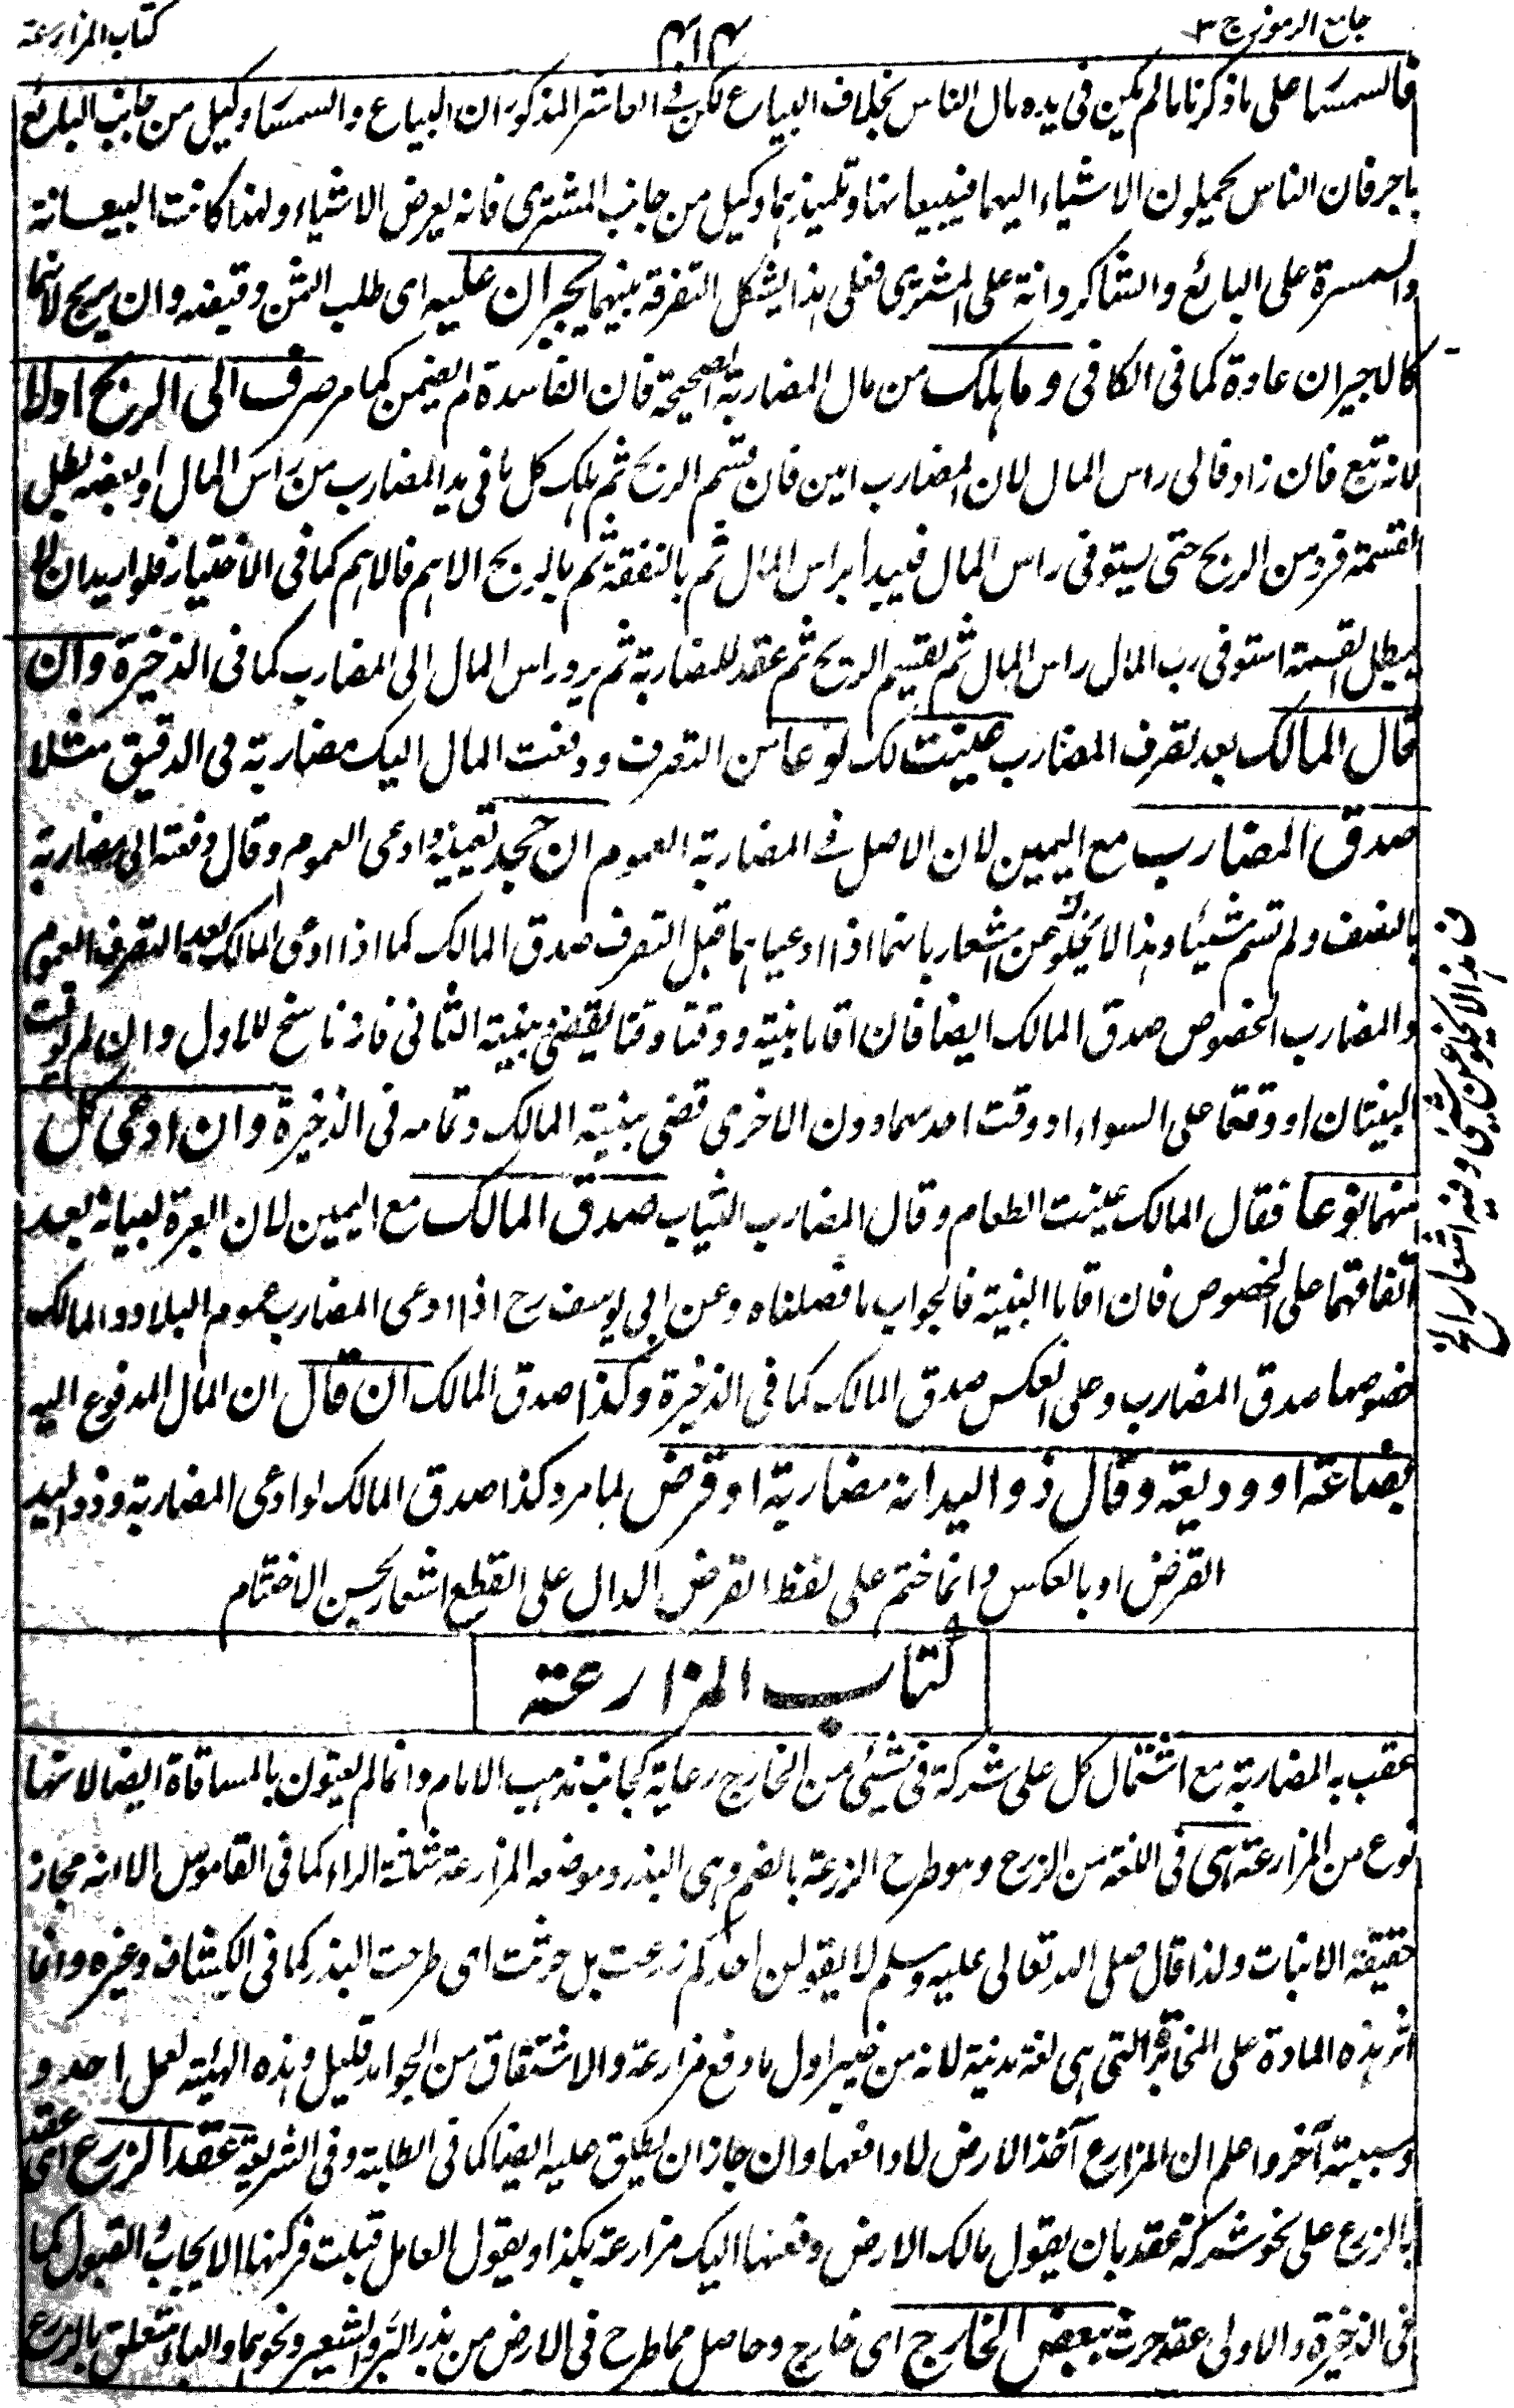 جامع الرموز ج ٣
٤١٤
كتاب المزارعة
فالسمسار على ما ذكرنا ما لم يكن فى يده مال الناس بخلاف البياع لكن فى العاشر المذكور ان البياع والسمسار وكيل من جانب البائع
باجر فان الناس يحملون الاشياء اليهما فيبيعانها وتلميذهما وكيل من جانب المشترى فانه يعرض الاشياء ولهذا كانت البيعانة
والسمسرة على البائع والشاكردانة على المشترى فعلى هذا يشكل التفرقة بينهما يجبران عليه اى طلب الثمن وقبضه وان لم يربح لانهما
كالاجيران عادة كما فى الكافى وما هلك من مال المضاربة الصحيحة فان الفاسدة لم يضمن كما مر صرف الى الربح اولا
لانه تبع فان زاد فالى راس المال لان المضارب امين فان قسم الربح ثم هلك كل ما فى يد المضارب من راس المال او بعضه بطل
القسمة فرد من الربح حتى يستوفى راس المال فيبدأ براس المال ثم بالنفقة ثم بالربح الاهم فالاهم كما فى الاختيار فلو اريد ان لا
يبطل القسمة استوفى رب المال راس المال ثم يقسم الربح ثم عقد للمضاربة ثم يرد راس المال الى المضارب كما فى الذخيرة وان
قال المالك بعد تصرف المضارب عينت لك نوعا من التصرف ودفعت المال اليك مضاربة فى الدقيق مثلا
صدق المضارب مع اليمين لان الاصل فى المضاربة العموم ان جحد تعيينه وادعى العموم وقال دفعته الى مضاربة
بالنصف ولم تسم شيئا وهذا لا يخلو عن اشعار بانهما اذا ادعياهما قبل التصرف صدق المالك كما اذا ادعى المالك بعد التصرف العموم
والمضارب الخصوص صدق المالك ايضا فان اقاما بينة ووقتا وقتا يقضى ببينة الثانى فانه ناسخ للاول وان لم يوقت
البينتان او وقتتا على السواء او وقت احدهما دون الاخرى قضى ببينة المالك وتمامه فى الذخيرة وان ادعى كل
منهما نوعا فقال المالك عينت الطعام وقال المضارب الثياب صدق المالك مع اليمين لان العبرة لبيانه بعد
اتفاقهما على الخصوص فان اقاما البينة فالجواب ما فصلناه وعن ابى يوسف رح اذا ادعى المضارب عموم البلاد والمالك
خصوصها صدق المضارب وعلى العكس صدق المالك كما فى الذخيرة وكذا صدق المالك ان قال ان المال المدفوع اليه
بضاعة او وديعة وقال ذو اليد انه مضاربة او قرض لما مر وكذا صدق المالك لو ادعى المضاربة وذو اليد
القرض او بالعكس وانما ختم على لفظ القرض الدال على القطع اشعار بحسن الاختتام
كتاب المزارعة
عقب به المضاربة مع اشتمال كل على شركة فى شيئ من الخارج رعاية لجانب مذهب الامام وانما لم يعنون بالمساقاة ايضا لانها
نوع من المزارعة هى فى اللغة من الزرع وهو طرح الزرعة بالضم وهى البذر وموضعه المزارعة مثلثة الراء كما فى القاموس الا انه مجاز
حقيقة الانبات ولذا قال صلى الله تعالى عليه وسلم لا يقولن احدكم زرعت بل حرثت اى طرحت البذر كما فى الكشاف وغيره وانما
اثر هذه المادة على المخابرة التى هى لغة مدنية لانه من خيبر اول ما دفع مزارعة والاشتقاق من الجوامد قليل وهذه الهيئة لعمل احد و
وسببية آخر واعلم ان المزارع آخذ الارض لا دافعها وان جاز ان يطلق عليه ايضا كما فى الطلبة وفى الشريعة عقد الزرع اى عقد
بالزرع على نحو شركة عقد بان يقول مالك الارض دفعنها اليك مزارعة بكذا ويقول العامل قبلت فركنها الايجاب والقبول كما
فى الذخيرة والاولى عقد حرث ببعض الخارج اى خارج وحاصل مما طرح فى الارض من بذر البر والشعير ونحوهما والباء متعلق بالزرع
ن هذا لا يخلو عن شيئ وفيه اشعار الخ